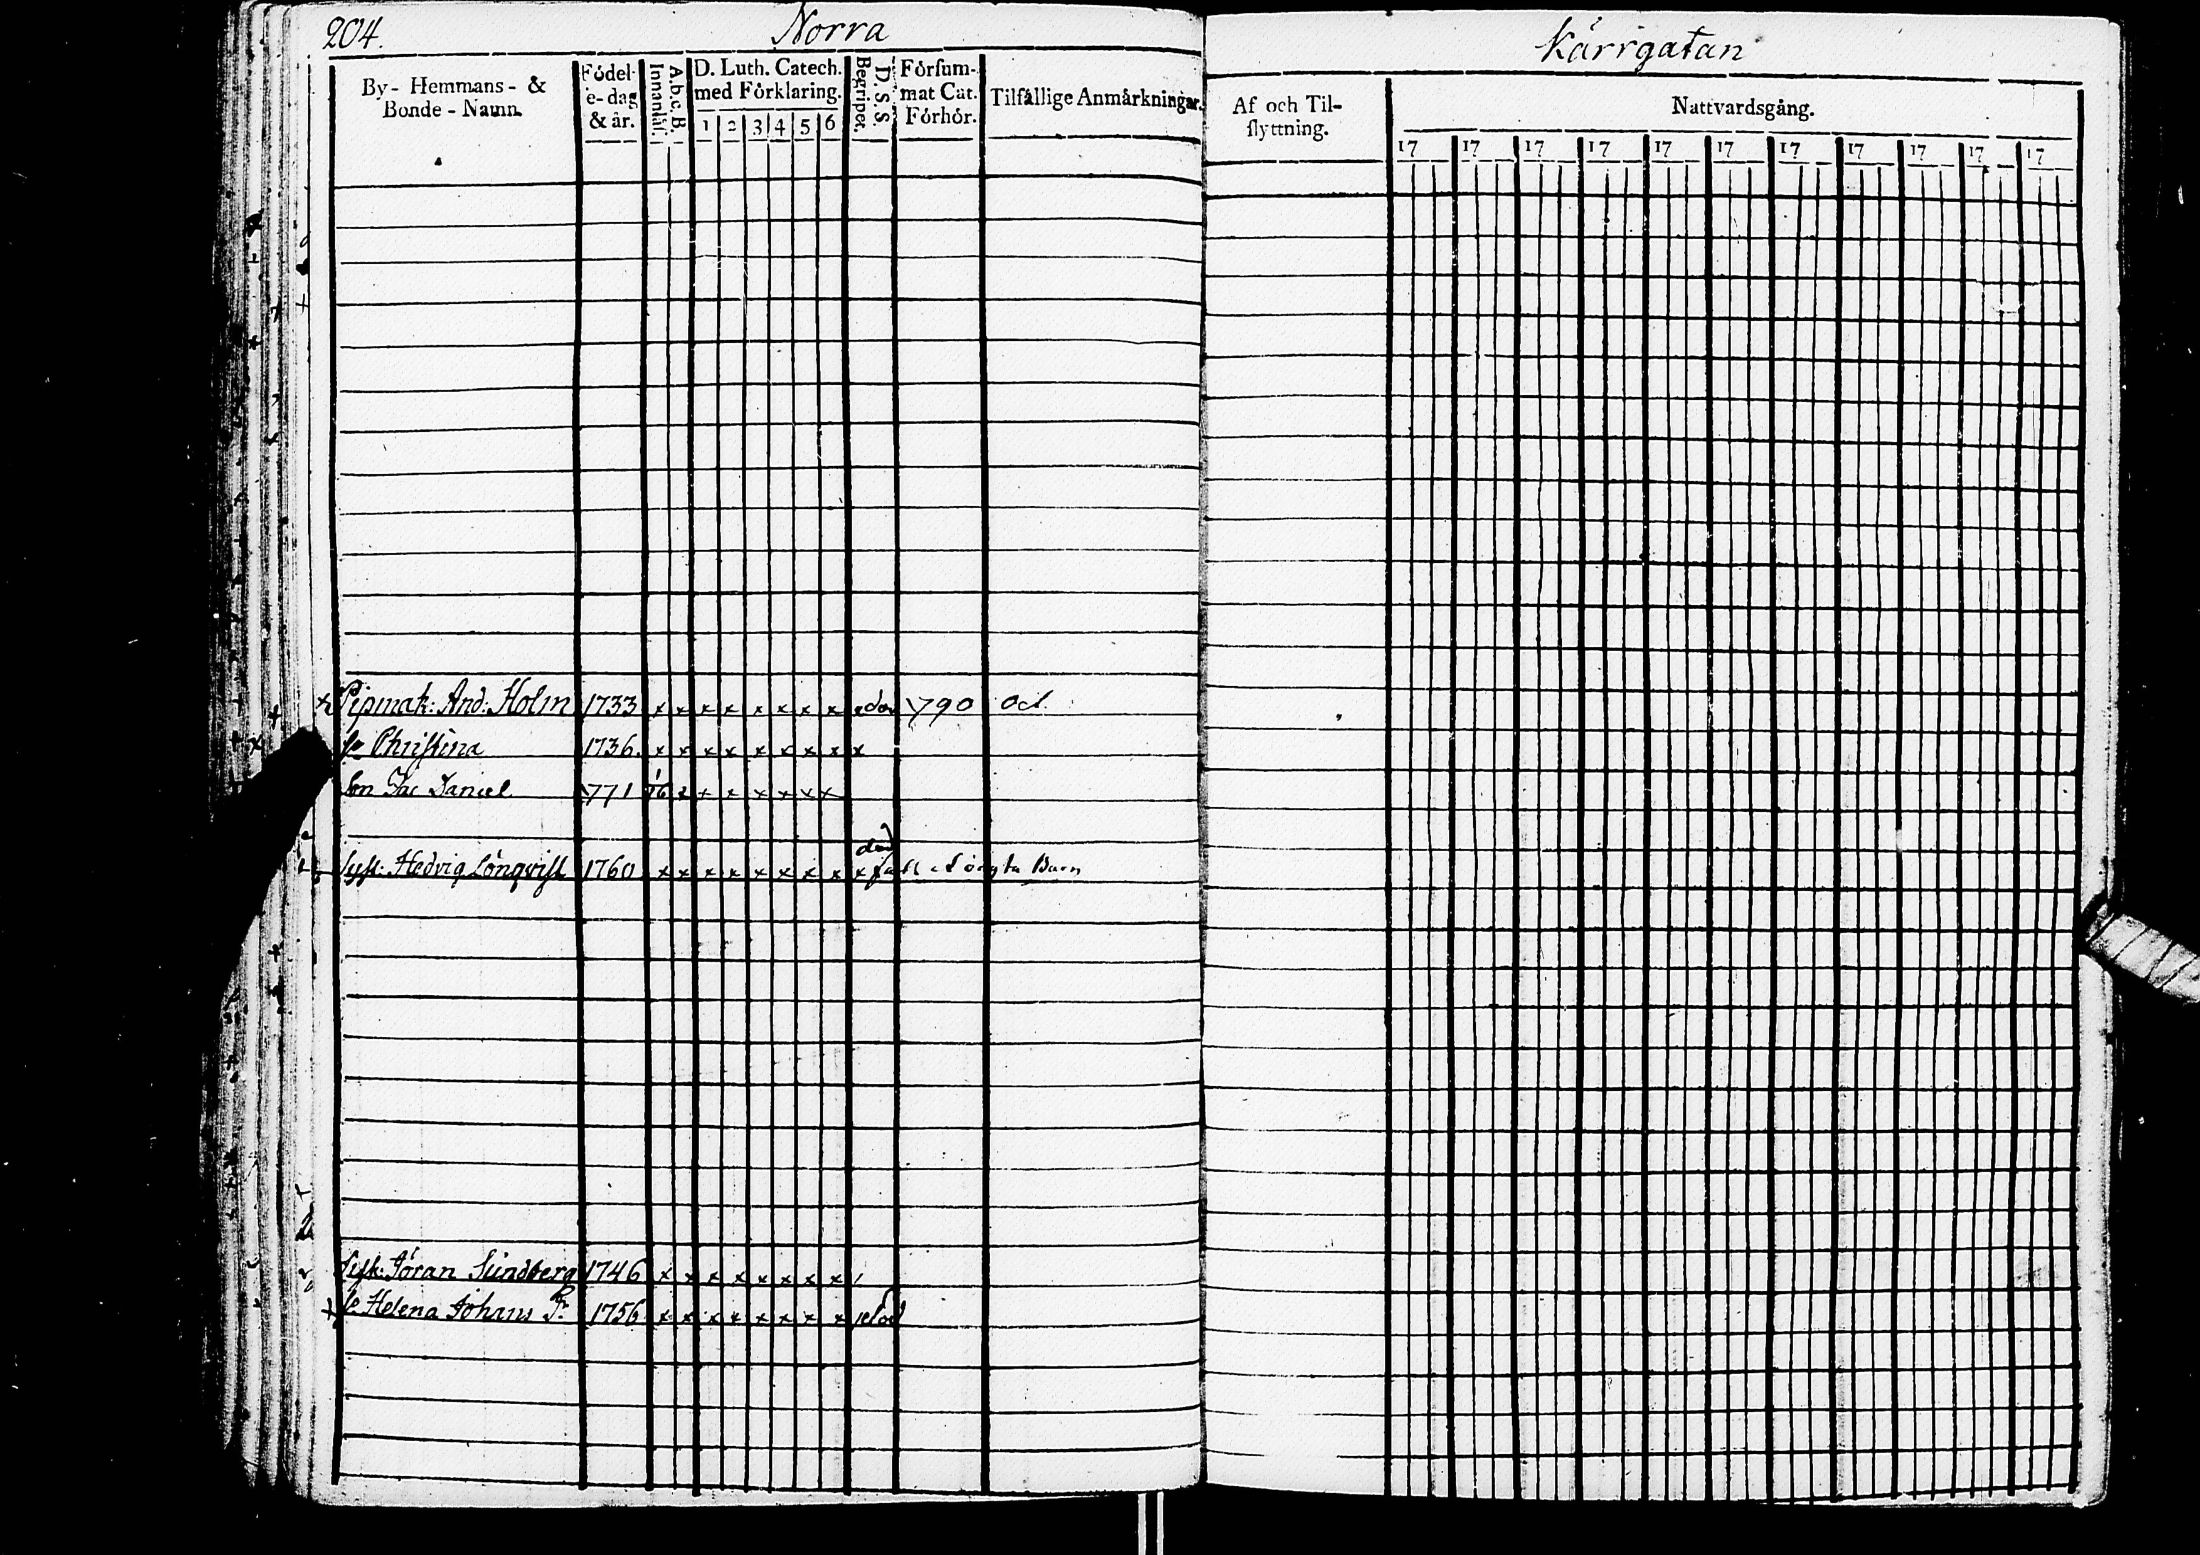 204. Norra
Kärrgatan
By- Hemmans- & Bonde-Namn.
Födel-e-dag & år.
Innanläs.
A.b.c.B.
D. Luth. Catech. med Förklaring.
1 2 3 4 5 6
Begriper.
D. S. S.
Försum-mat Cat. Förhör.
Tilfällige Anmärkningar.
Af och Til-flyttning.
Nattvardsgång.
17 17 17 17 17 17 17 17 17 17 17
Pipmak: And: Holm 1733 x x x x x x x x död 1790 Oct.
h. Christina 1736. x x x x x x x x x
Son Jac Daniel 1771 x x x x x x
Syst: Hedvig Lönqvist 1760 x x x x x x x x x död Barn
Göran Sundberg 1746 x x x x x x x x
h. Helena Johans Dr 1756 x x x x x x x x död